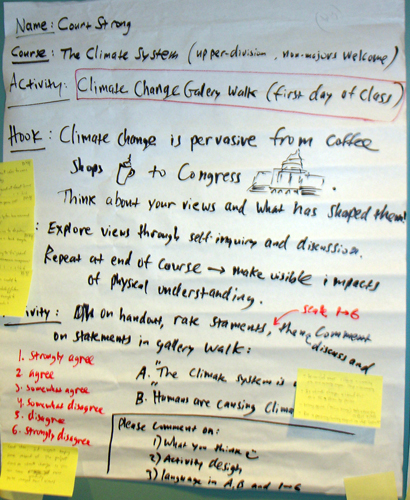 Name: Court Strong
Course: The Climate System (upper-division, non-majors welcome)
Activity: Climate Change Gallery Walk (first day of class)
Hook: Climate change is pervasive from coffee
shops to Congress.
Think about your views and what has shaped them!
: Explore views through self-inquiry and discussion.
Repeat at end of course → make visible impacts
of physical understanding.
scale 1-6
ivity: on handout, rate staments, then comment
discuss and
on statements in gallery walk:
1. Strongly agree
2. agree
3. somewhat agree
4. somewhat disagree
5. disagree
6. strongly disagree
A. "The climate system is
B. "Humans are causing Clima
Please comment on:
1) What you think
2) Activity design
3) language in A, B and 1-6